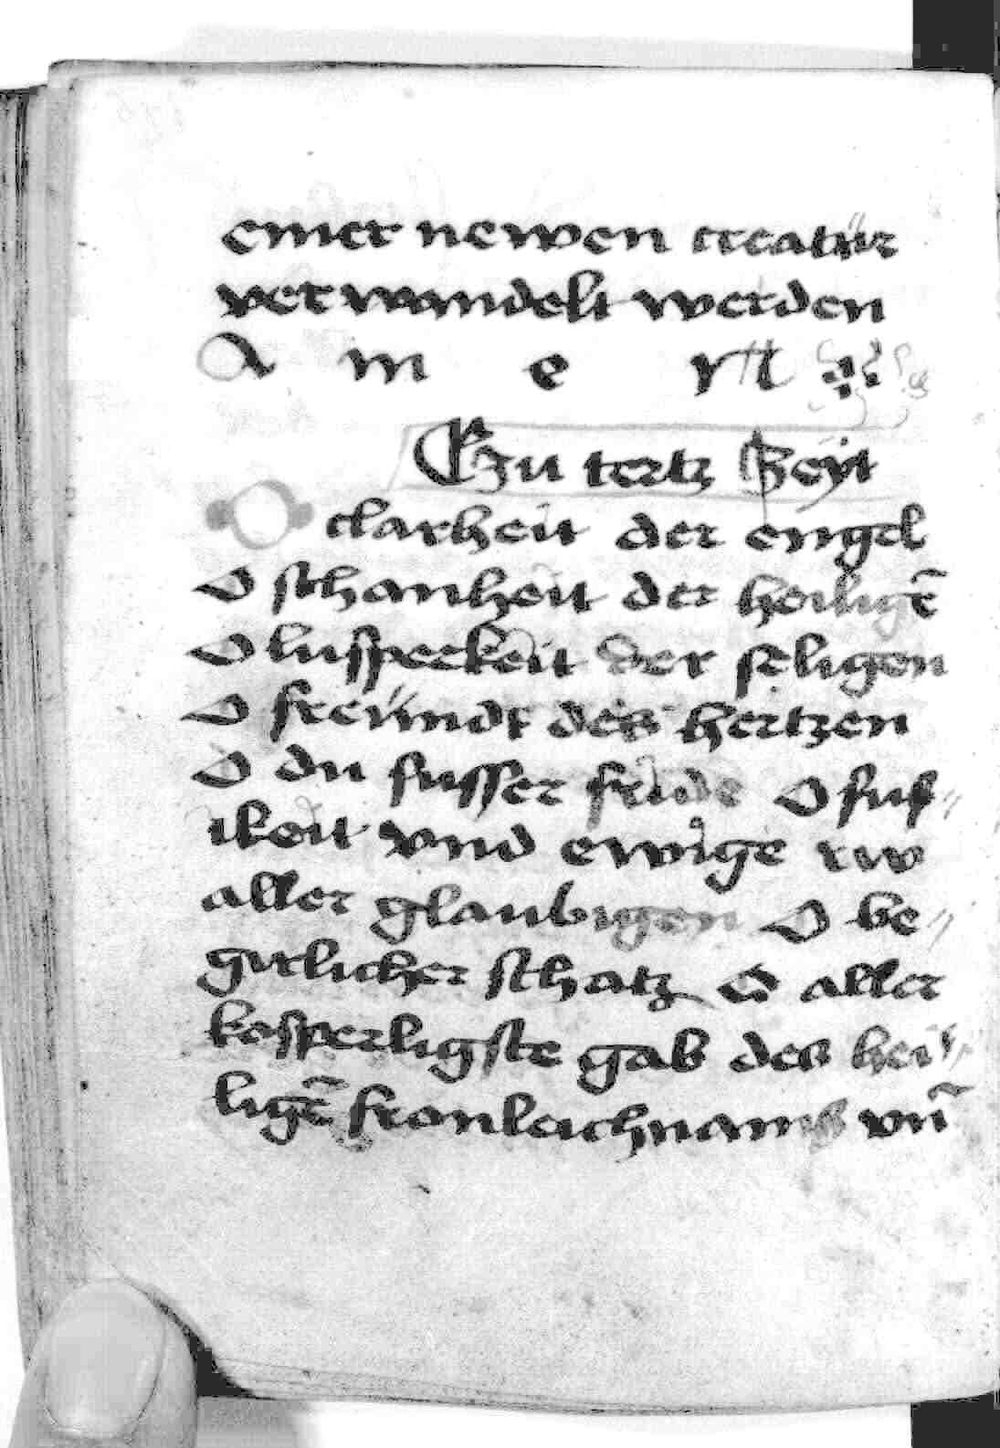 einer newen creatür
verwandelt werden
A m e n
Zu tertz Zeyt
O clarheit der engel
O schanheit der heiligē
O lusperkeit der seligen
O freündt des hertzen
O du susser fride O suß
ikeit vnd ewige rw
aller glaubigen O be
girlicher schatz O aller
kosperligste gab des hei
ligē fronleichnams vn̄